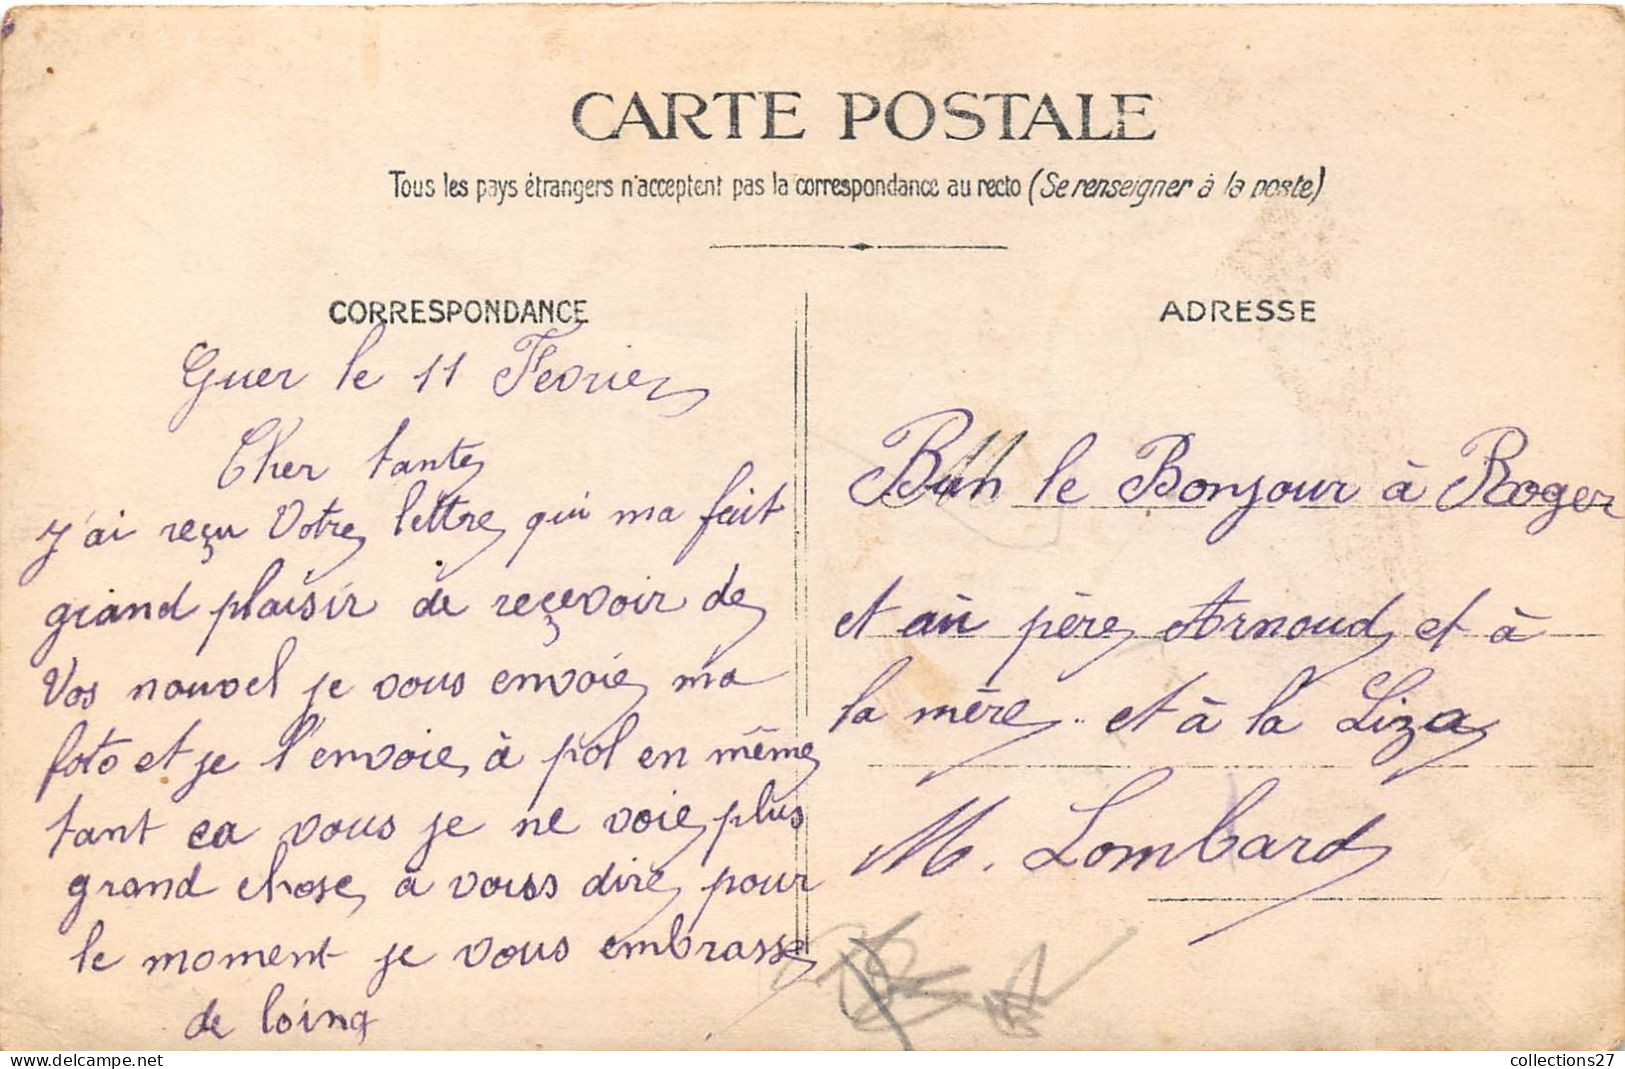 CARTE POSTALE
Tous les pays étrangers n'acceptent pas la correspondance au recto (Se renseigner à la poste)
CORRESPONDANCE
Guer le 11 Fevrier
Cher tante
J'ai reçu Votre lettre qui ma fait
grand plaisir de reçevoir de
Vos nouvel je vous envoie ma
foto et je l'envoie à pol en même
tant ca vous je ne voie plus
grand chose à vous dire pour
le moment je vous embrasse
de loing
ADRESSE
le Bonjour à Roger
et au père Arnoud et à
la mère et à la Liza
M. Lombard
collections27